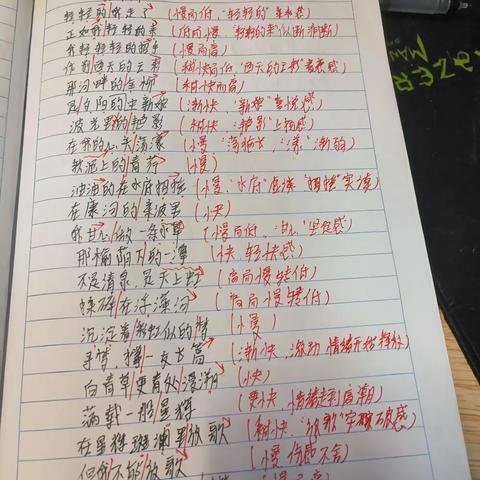 轻轻的我走了 (慢而低, "轻轻的"
正如我轻轻的来 (低而慢 "轻轻的来"似断非断)
我轻轻的招手 (慢而高)
作别西天的云彩 (稍快而低 "西天的云彩"
那河畔的金柳 (稍快而高)
是夕阳的中新娘 (渐快 "新娘"喜悦感)
波光里的艳影 (稍快 "艳影"上扬感)
在我的心头荡漾 (慢 "荡"
软泥上的青荇 (慢)
油油的在水底招摇 (慢 "水底"虚读 "招摇"实读)
在康河的柔波里 (快)
我甘心做一条水草 (慢而低 "甘心"坚定感)
那榆荫下的一潭 (快, 轻快感)
不是清泉,是天上虹 (高而慢转低)
揉碎在浮藻间 (高而慢转低)
沉淀着彩虹似的梦 (慢)
寻梦,撑一支长篙 (渐快, 激动 情绪开始释放)
向青草更青处漫溯 (快)
满载一船星辉 (要快, 情绪走到高潮)
在星辉斑斓里放歌 (稍快 "放歌"
但我不能放歌 (慢 伤感不舍)